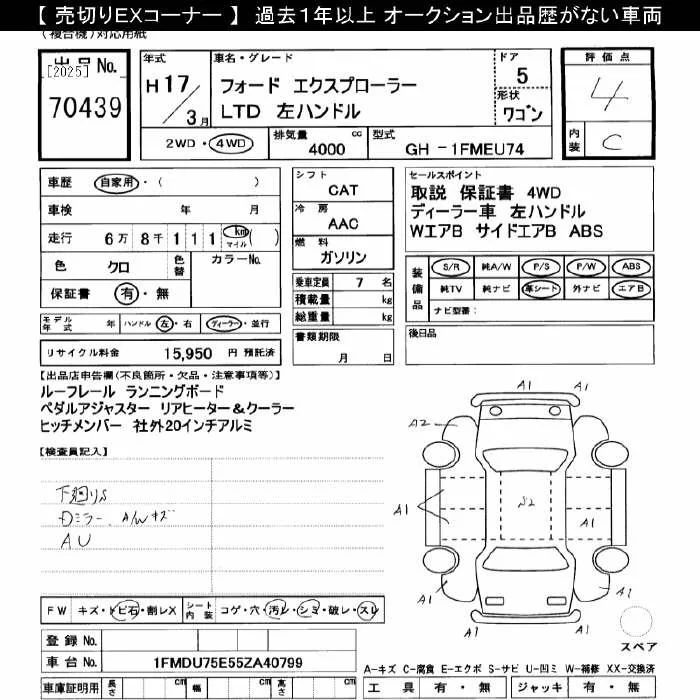 【 売切りEXコーナー 】 過去1年以上 オークション出品歴がない車両
(複合機)対応用紙
出品 No.
[2025]
70439
年式
H 17 / 3月
車名・グレード
フォード エクスプローラー
LTD 左ハンドル
ドア
5
形状
ワゴン
評価点
4
内装
C
2WD・4WD
排気量 cc
4000
型式
GH -1FMEU74
車歴 自家用・( )
車検 年 月
走行 6万 8千 1 1 1 km マイル ( )
色 クロ 色替 カラーNo.
保証書 有・無
シフト
CAT
冷房
AAC
燃料
ガソリン
乗車定員 7 名
積載量 kg
総重量 kg
書類期限
月 日
セールスポイント
取説 保証書 4WD
ディーラー車 左ハンドル
WエアB サイドエアB ABS
装備品
S/R 純A/W P/S P/W ABS
純TV 純ナビ 革シート 外ナビ エアB
ナビ型番:
後日品
モデル年式 年 ハンドル 左・右 ディーラー・並行
リサイクル料金 15,950 円 預託済
【出品店申告欄(不良箇所・欠品・注意事項等)】
ルーフレール ランニングボード
ペダルアジャスター リアヒーター&クーラー
ヒッチメンバー 社外20インチアルミ
【検査員記入】
下廻りS
Dミラー、A/Wキズ
AU
A1
A1
A2
A1
A1
A1
S2
A1
A1
A1
スペア
FW キズ・トビ石・割レX シート内装 コゲ・穴・汚レ・シミ・破レ・スレ
登録 No.
車台 No. 1FMDU75E55ZA40799
車庫証明用 長さ cm 幅 cm 高さ cm
A-キズ C-腐食 E-エクボ S-サビ U-凹ミ W-補修 XX-交換済
工具 有・無 ジャッキ 有・無